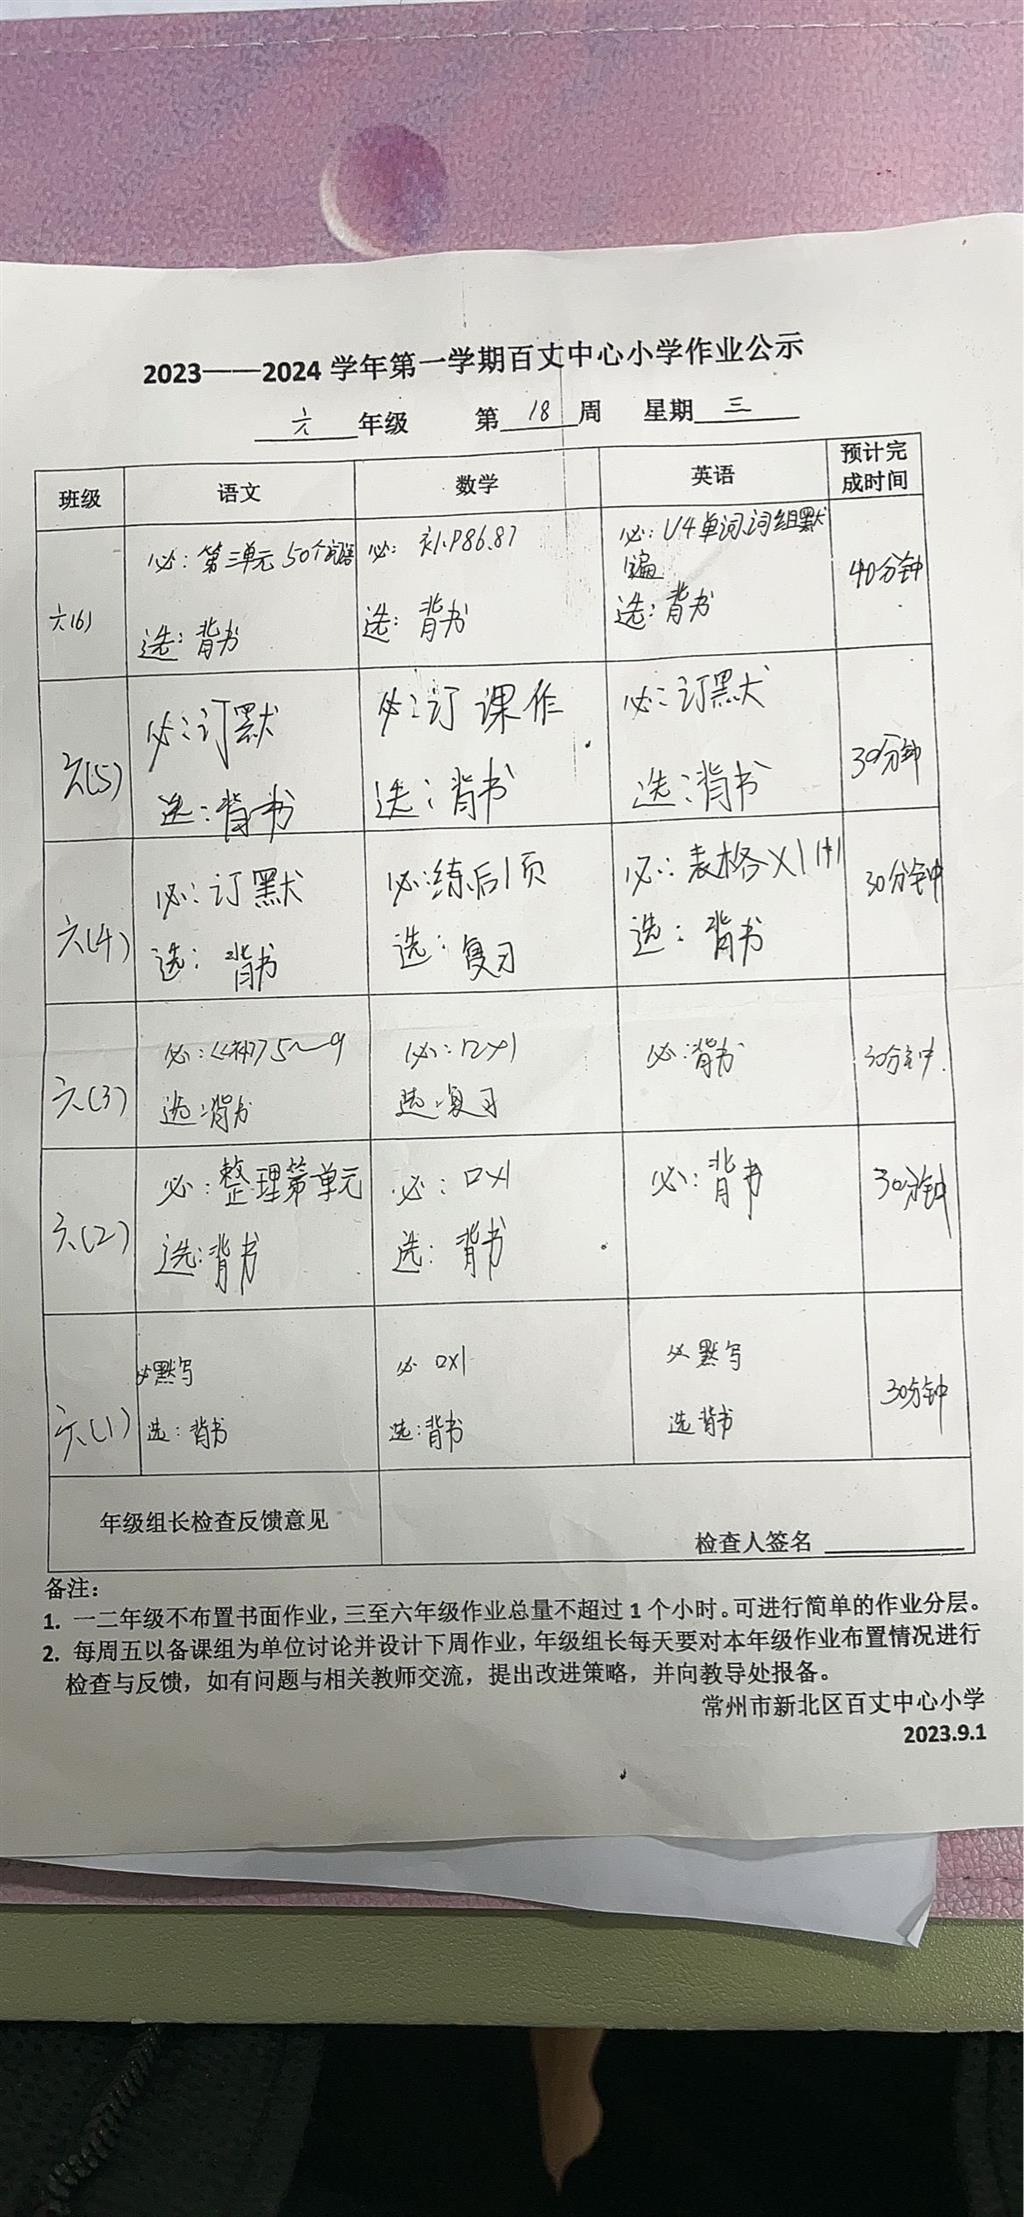 2023——2024 学年第一学期百丈中心小学作业公示
六 年级 第 18 周 星期 三
班级 语文 数学 英语 预计完成时间
六(6)
必：第三单元 50个词语
选：背书
必：补P86.87
选：背书
必：U4单词词组默
1遍
选：背书
40分钟
六(5)
必：订默
选：背书
必：订 课作
选：背书
必：订默
选：背书
30分钟
六(4)
必：订默
选：背书
必：练后1页
选：复习
必：表格×1
选：背书
30分钟
六(3)
必：《补》5～9
选：背书
必：口×1
选：复习
必：背书
30分钟
六(2)
必：整理第单元
选：背书
必：口×1
选：背书
必：背书
30分钟
六(1)
必 默写
选：背书
必 口×1
选：背书
必 默写
选 背书
30分钟
年级组长检查反馈意见
检查人签名
备注：
1. 一二年级不布置书面作业，三至六年级作业总量不超过 1 个小时。可进行简单的作业分层。
2. 每周五以备课组为单位讨论并设计下周作业，年级组长每天要对本年级作业布置情况进行
检查与反馈，如有问题与相关教师交流，提出改进策略，并向教导处报备。
常州市新北区百丈中心小学
2023.9.1